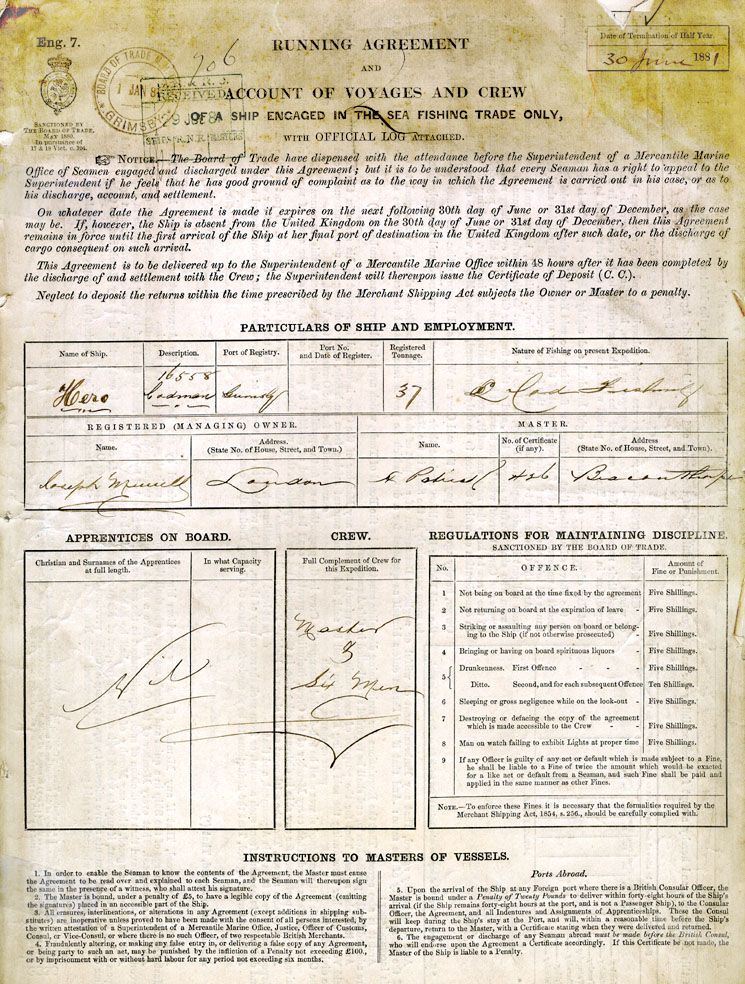 Eng. 7.
SANCTIONED BY
THE BOARD OF TRADE,
MAY 1880.
In pursuance of
17 & 18 Vict. c. 104.
BOARD OF TRADE
1 JAN 8
GRIMSBY
206
RECEIVED
RUNNING AGREEMENT
AND
ACCOUNT OF VOYAGES AND CREW
OF A SHIP ENGAGED IN THE SEA FISHING TRADE ONLY,
WITH OFFICIAL LOG ATTACHED.
Date of Termination of Half Year.
30 June 1881
NOTICE.—The Board of Trade have dispensed with the attendance before the Superintendent of a Mercantile Marine
Office of Seamen engaged and discharged under this Agreement; but it is to be understood that every Seaman has a right to appeal to the
Superintendent if he feels that he has good ground of complaint as to the way in which the Agreement is carried out in his case, or as to
his discharge, account, and settlement.
On whatever date the Agreement is made it expires on the next following 30th day of June or 31st day of December, as the case
may be. If, however, the Ship is absent from the United Kingdom on the 30th day of June or 31st day of December, then this Agreement
remains in force until the first arrival of the Ship at her final port of destination in the United Kingdom after such date, or the discharge of
cargo consequent on such arrival.
This Agreement is to be delivered up to the Superintendent of a Mercantile Marine Office within 48 hours after it has been completed by
the discharge of and settlement with the Crew; the Superintendent will thereupon issue the Certificate of Deposit (C. C.).
Neglect to deposit the returns within the time prescribed by the Merchant Shipping Act subjects the Owner or Master to a penalty.
PARTICULARS OF SHIP AND EMPLOYMENT.
Name of Ship. Description. Port of Registry. Port No. and Date of Register. Registered Tonnage. Nature of Fishing on present Expedition.
16558
Hero Codman Grimsby 37 Cod Fishing
REGISTERED (MANAGING) OWNER. MASTER.
Name. Address. (State No. of House, Street, and Town.) Name. No. of Certificate (if any). Address (State No. of House, Street, and Town).
Joseph London
APPRENTICES ON BOARD.
Christian and Surnames of the Apprentices at full length. In what Capacity serving.
Nil
CREW.
Full Complement of Crew for this Expedition.
Master
&
Six Men
REGULATIONS FOR MAINTAINING DISCIPLINE.
SANCTIONED BY THE BOARD OF TRADE.
No. OFFENCE. Amount of Fine or Punishment.
1 Not being on board at the time fixed by the agreement Five Shillings.
2 Not returning on board at the expiration of leave - Five Shillings.
3 Striking or assaulting any person on board or belong-
ing to the Ship (if not otherwise prosecuted) - Five Shillings.
4 Bringing or having on board spirituous liquors - Five Shillings.
5 Drunkenness. First Offence - - - Five Shillings.
Ditto. Second, and for each subsequent Offence Ten Shillings.
6 Sleeping or gross negligence while on the look-out - Five Shillings.
7 Destroying or defacing the copy of the agreement
which is made accessible to the Crew - - Five Shillings.
8 Man on watch failing to exhibit Lights at proper time Five Shillings.
9 If any Officer is guilty of any act or default which is made subject to a Fine,
he shall be liable to a Fine of twice the amount which would be exacted
for a like act or default from a Seaman, and such Fine shall be paid and
applied in the same manner as other Fines.
NOTE.—To enforce these Fines it is necessary that the formalities required by the
Merchant Shipping Act, 1854, s. 256., should be carefully complied with.
INSTRUCTIONS TO MASTERS OF VESSELS.
1. In order to enable the Seaman to know the contents of the Agreement, the Master must cause
the Agreement to be read over and explained to each Seaman, and the Seaman will thereupon sign
the same in the presence of a witness, who shall attest his signature.
2. The Master is bound, under a penalty of £5, to have a legible copy of the Agreement (omitting
the signatures) placed in an accessible part of the Ship.
3. All erasures, interlineations, or alterations in any Agreement (except additions in shipping sub-
stitutes) are inoperative unless proved to have been made with the consent of all persons interested, by
the written attestation of a Superintendent of a Mercantile Marine Office, Justice, Officer of Customs,
Consul, or Vice-Consul, or where there is no such Officer, of two respectable British Merchants.
4. Fraudulently altering, or making any false entry in, or delivering a false copy of any Agreement,
or being party to such an act, may be punished by the infliction of a Penalty not exceeding £100.,
or by imprisonment with or without hard labour for any period not exceeding six months.
Ports Abroad.
5. Upon the arrival of the Ship at any Foreign port where there is a British Consular Officer, the
Master is bound under a Penalty of Twenty Pounds to deliver within forty-eight hours of the Ship's
arrival (if the Ship remains forty-eight hours at the port, and is not a Passenger Ship), to the Consular
Officer, the Agreement, and all Indentures and Assignments of Apprenticeships. These the Consul
will keep during the Ship's stay at the Port, and will, within a reasonable time before the Ship's
departure, return to the Master, with a Certificate stating when they were delivered and returned.
6. The engagement or discharge of any Seaman abroad must be made before the British Consul,
who will endorse upon the Agreement a Certificate accordingly. If this Certificate be not made, the
Master of the Ship is liable to a Penalty.